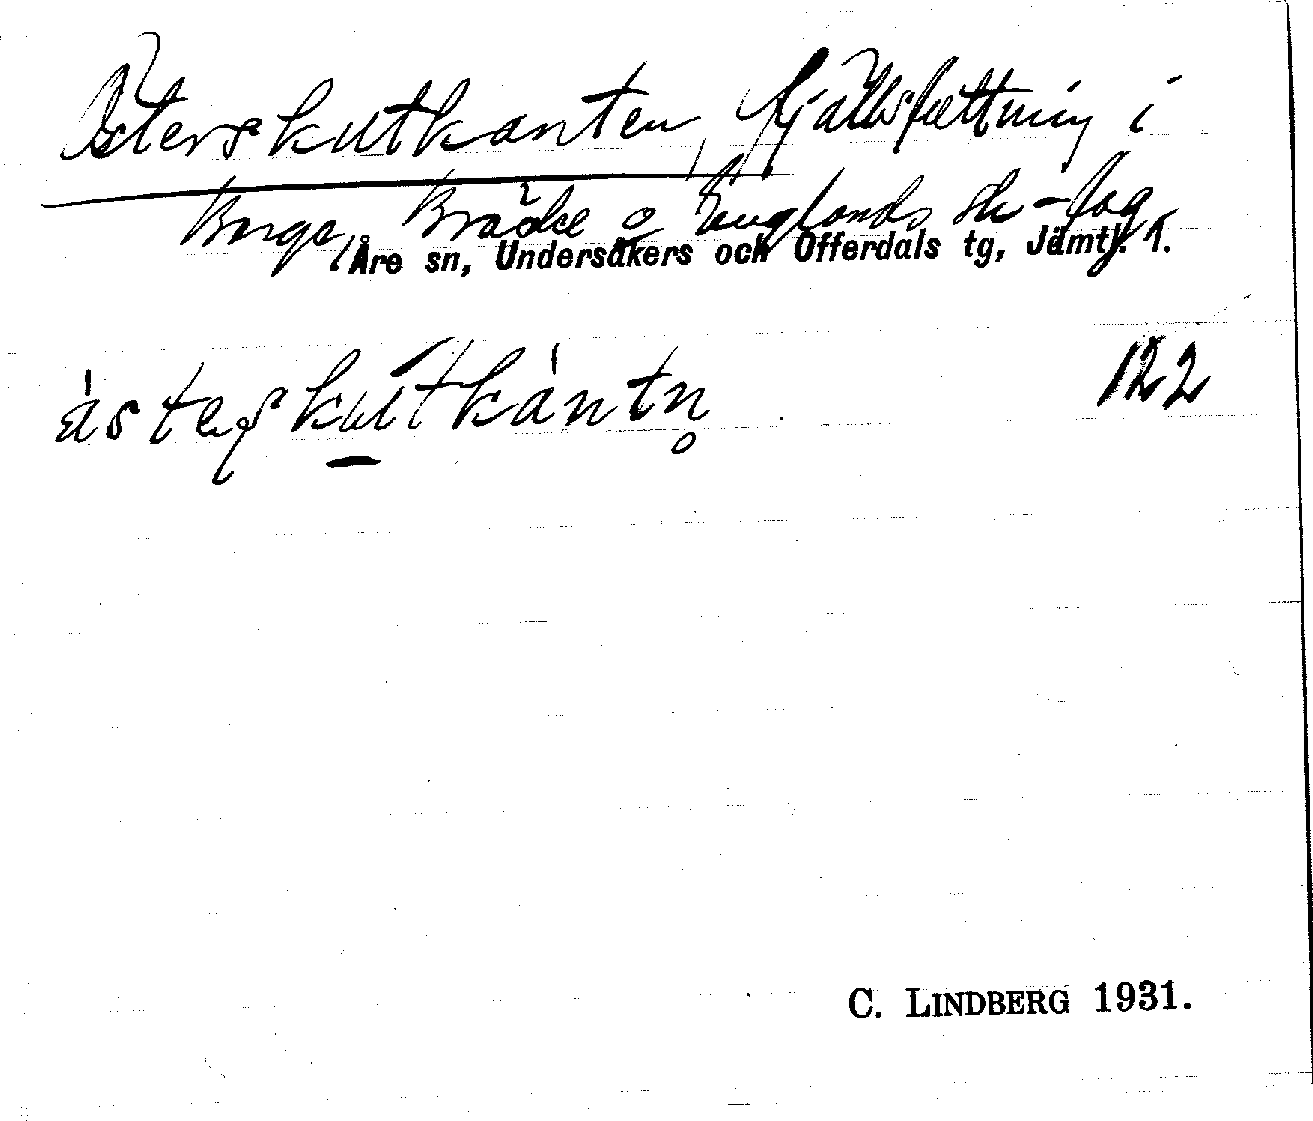 Österskutkanten, fjällsluttning i
Berge, Bräcke o Englands sk-lag
Åre sn, Undersåkers och Offerdals tg, Jämtl. l.
åsterskutkántn̥
122
C. LINDBERG 1931.